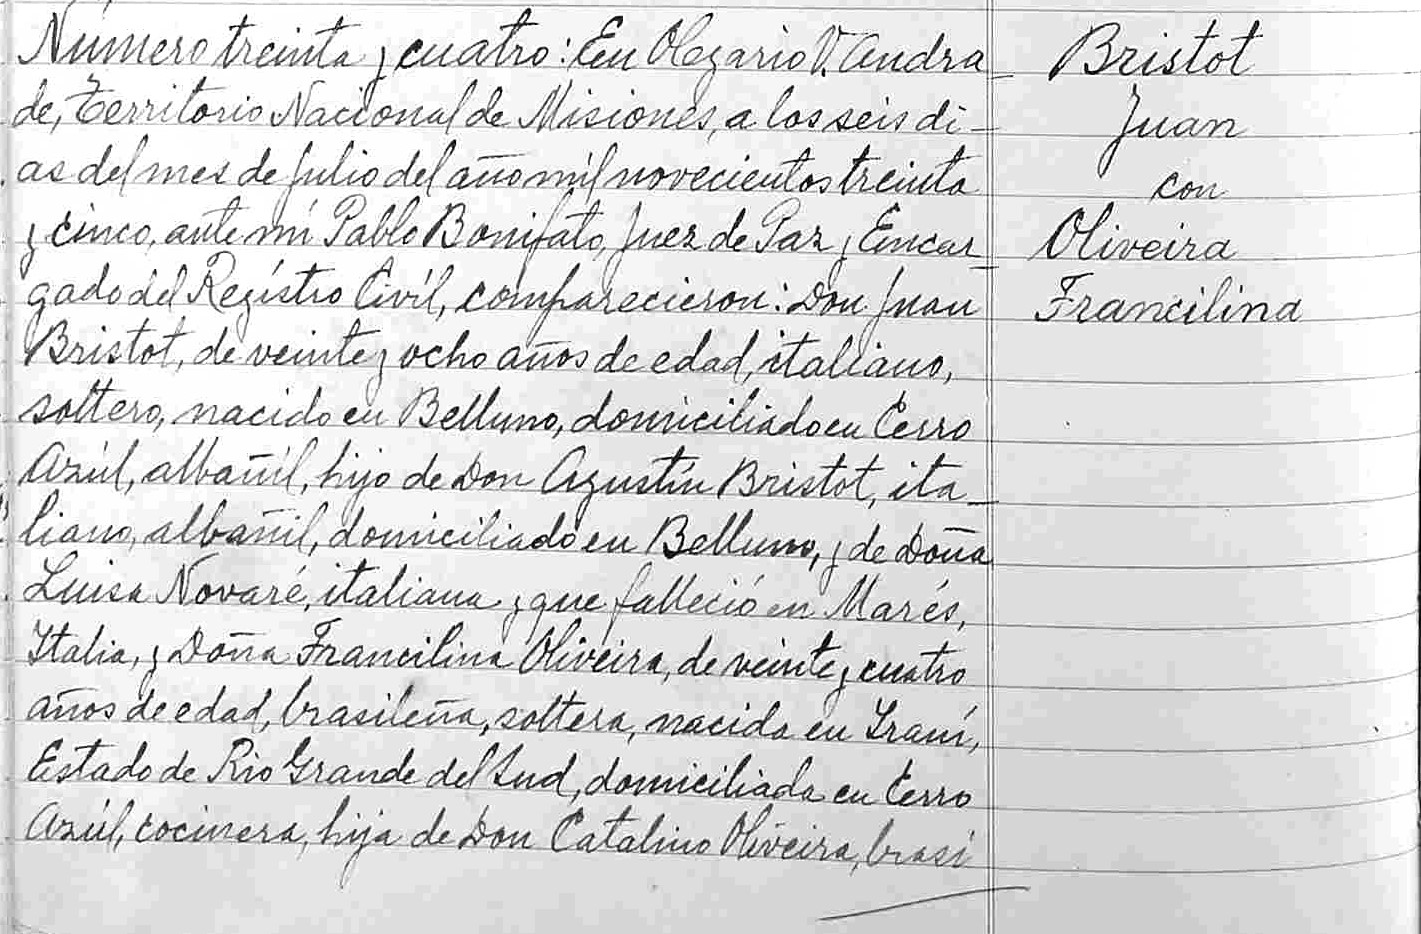 Número treinta y cuatro: En Olegario V. Andra
de, Territorio Nacional de Misiones, a los seis dí-
as del mes de Julio del año mil novecientos treinta
y cinco, ante mí Pablo Bonifato, Juez de Paz y Encar
gado del Registro Civil, comparecieron: Don Juan
Bristot, de veinte y ocho años de edad, italiano,
soltero, nacido en Belluno, domiciliado en Cerro
Azúl, albañil, hijo de Don Agustín Bristot, ita
liano, albañil, domiciliado en Belluno, y de Doña
Luisa Novaré, italiana y que falleció en Marés,
Italia, y Doña Francilina Oliveira, de veinte y cuatro
años de edad, brasileña, soltera, nacida en
Estado de Rio Grande del Sud, domiciliada en Cerro
Azúl, cocinera, hija de Don Catalino Oliveira, brasi
Bristot
Juan
con
Oliveira
Francilina